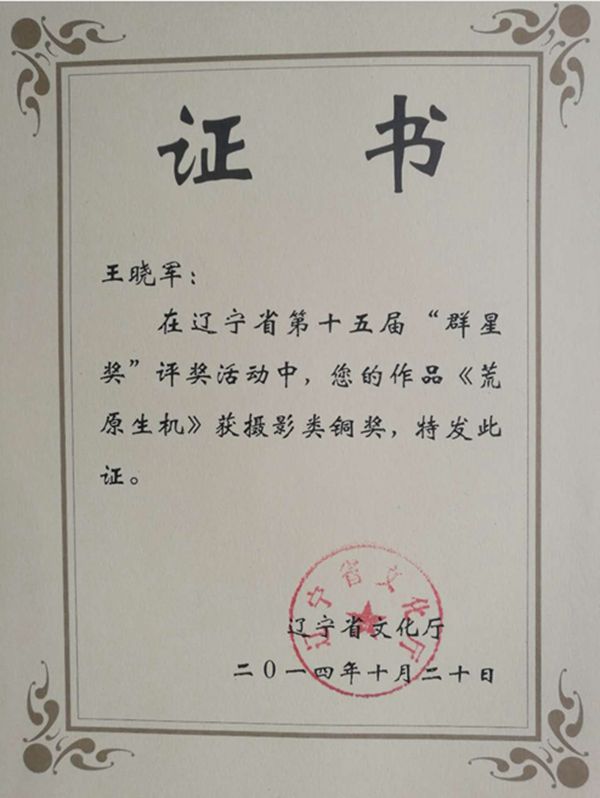 证 书
王晓军：
在辽宁省第十五届“群星
奖”评奖活动中，您的作品《荒
原生机》获摄影类铜奖，特发此
证。
辽宁省文化厅
辽宁省文化厅
二〇一四年十月二十日